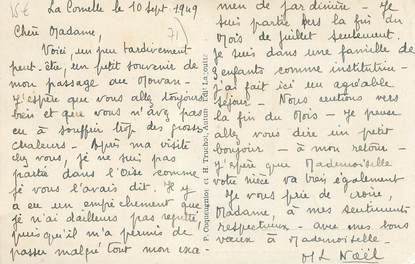 15€
La Comelle le 10 Sept 1949
Chère Madame,
71
Voici, un peu tardivement
peut-être, un petit souvenir de
mon passage au Morvan -
J'espère que vous allez toujours
bien et que vous n'avez pas
eu à souffrir trop des grosses
chaleurs - Après ma visite
chez vous, je ne suis pas
partie dans l'Oise comme
je vous l'avais dit. Il y
a eu un empêchement que
je n'ai d'ailleurs pas regretté
puisqu'il m'a permis de
passer malgré tout mon exa-
men de jardinière - Je
suis partie vers la fin du
Mois de juillet seulement.
Je suis dans une famille de
enfants comme institutrice -
J'ai fait ici un agréable
séjour - Nous rentrons vers
la fin du Mois - Je pense
aller vous dire un petit
bonjour - à mon retour -
J'espère que Mademoiselle
votre nièce va bien également
Je vous prie de croire,
Madame, à mes sentiments
respectueux - avec mes bons
vœux à Mademoiselle -
M L Noël
et H. Truchot, Autun